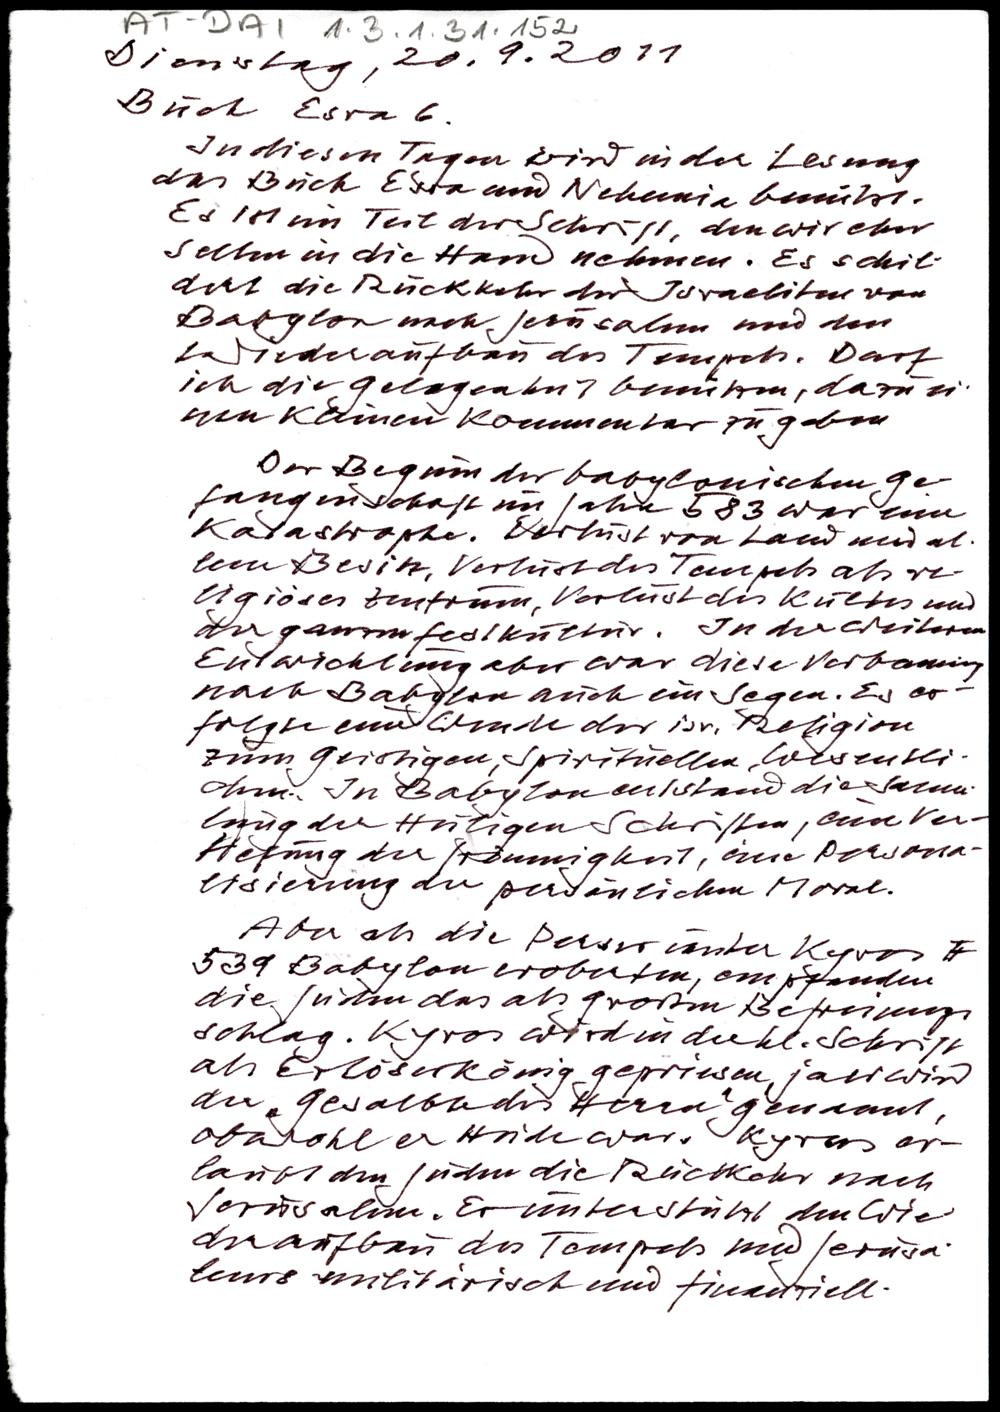 AT-DAI 1.3.1.31.152
Dienstag, 20.9.2011
Buch Esra 6.
In diesen Tagen wird in der Lesung
das Buch Esra und Nehemia benützt.
Es ist ein Teil der Schrift, den wir eher
selten in die Hand nehmen. Es schil-
dert die Rückkehr der Israeliten von
Babylon nach Jerusalem und den
Wiederaufbau des Tempels. Darf
ich die Gelegenheit benützen, dazu ei-
nen kleinen Kommentar zu geben
Der Beginn der babylonischen Ge-
fangenschaft im Jahre 583 war eine
Katastrophe. Verlust von Land und al-
lem Besitz, Verlust des Tempels als re-
ligiöses Zentrum, Verlust des Kultes und
der ganzen Festkultur. In der weiteren
Entwicklung aber war diese Verbannung
nach Babylon auch ein Segen. Es er-
folgte eine Wende der isr. Religion
zum Geistigen, Spirituellen, Wesentli-
chen. In Babylon entstand die Samm-
lung der Heiligen Schriften, eine Ver-
tiefung der Frömmigkeit, eine Persona-
lisierung der persönlichen Moral.
Aber als die Perser unter Kyros II
539 Babylon eroberten, empfanden
die Juden das als grossen Befreiungs
schlag. Kyros wird in der hl. Schrift
als Erlöserkönig gepriesen, ja er wird
der "Gesalbte des Herrn" genannt,
obwohl er Heide war. Kyros er-
laubt den Juden die Rückkehr nach
Jerusalem. Er unterstützt den Wie-
deraufbau des Tempels und Jerusa-
lems militärisch und finanziell.